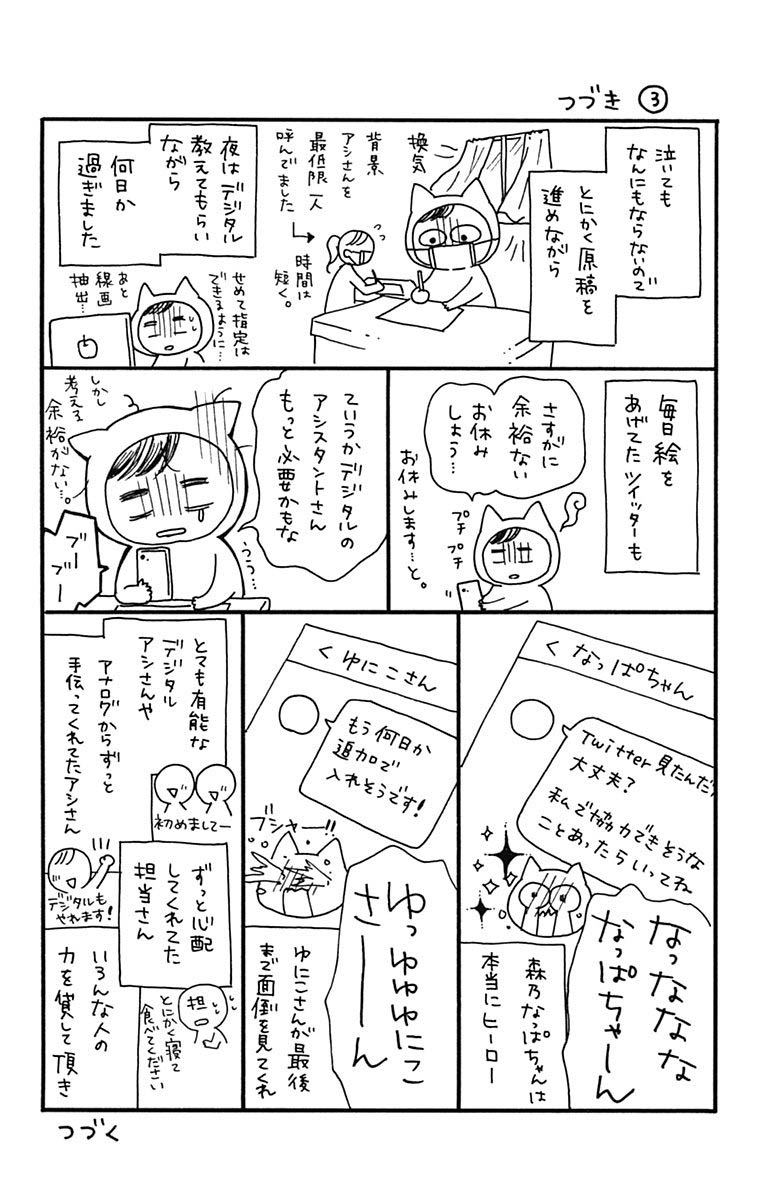 つづき ③
泣いても
なんにもならないので
とにかく原稿を
進めながら
換気
背景
アシさんを
最低限一人
呼んでました
→時間は
短く。
夜はデジタル
教えてもらい
ながら
何日か
過ぎました
せめて指定は
できるように…
あと
線画
抽出…
毎日絵を
あげてたツイッターも
さすがに
余裕ない
お休み
しよう…
プチ
プチ
お休みします…と。
ていうかデジタルの
アシスタントさん
もっと必要かもな
うう…
しかし
考える
余裕がない…。
ブー
ブー
< なっぱちゃん
Twitter見たんだけ
大丈夫?
私で協力できそうな
ことあったらいってね
なっななな
なっぱちゃーん
森乃なっぱちゃんは
本当にヒーロー
< ゆにこさん
もう何日か
追加で
入れそうです!
ブシャー!!
ゆっゆゆゆにこ
さーーん
ゆにこさんが最後
まで面倒を見てくれ
とても有能な
デジタル
アシさんや
初めましてー
アナログからずっと
手伝ってくれてたアシさん
デジタルも
やれます!
ずっと心配
してくれてた
担当さん
担
とにかく寝て
食べてください
いろんな人の
力を貸して頂き
つづく